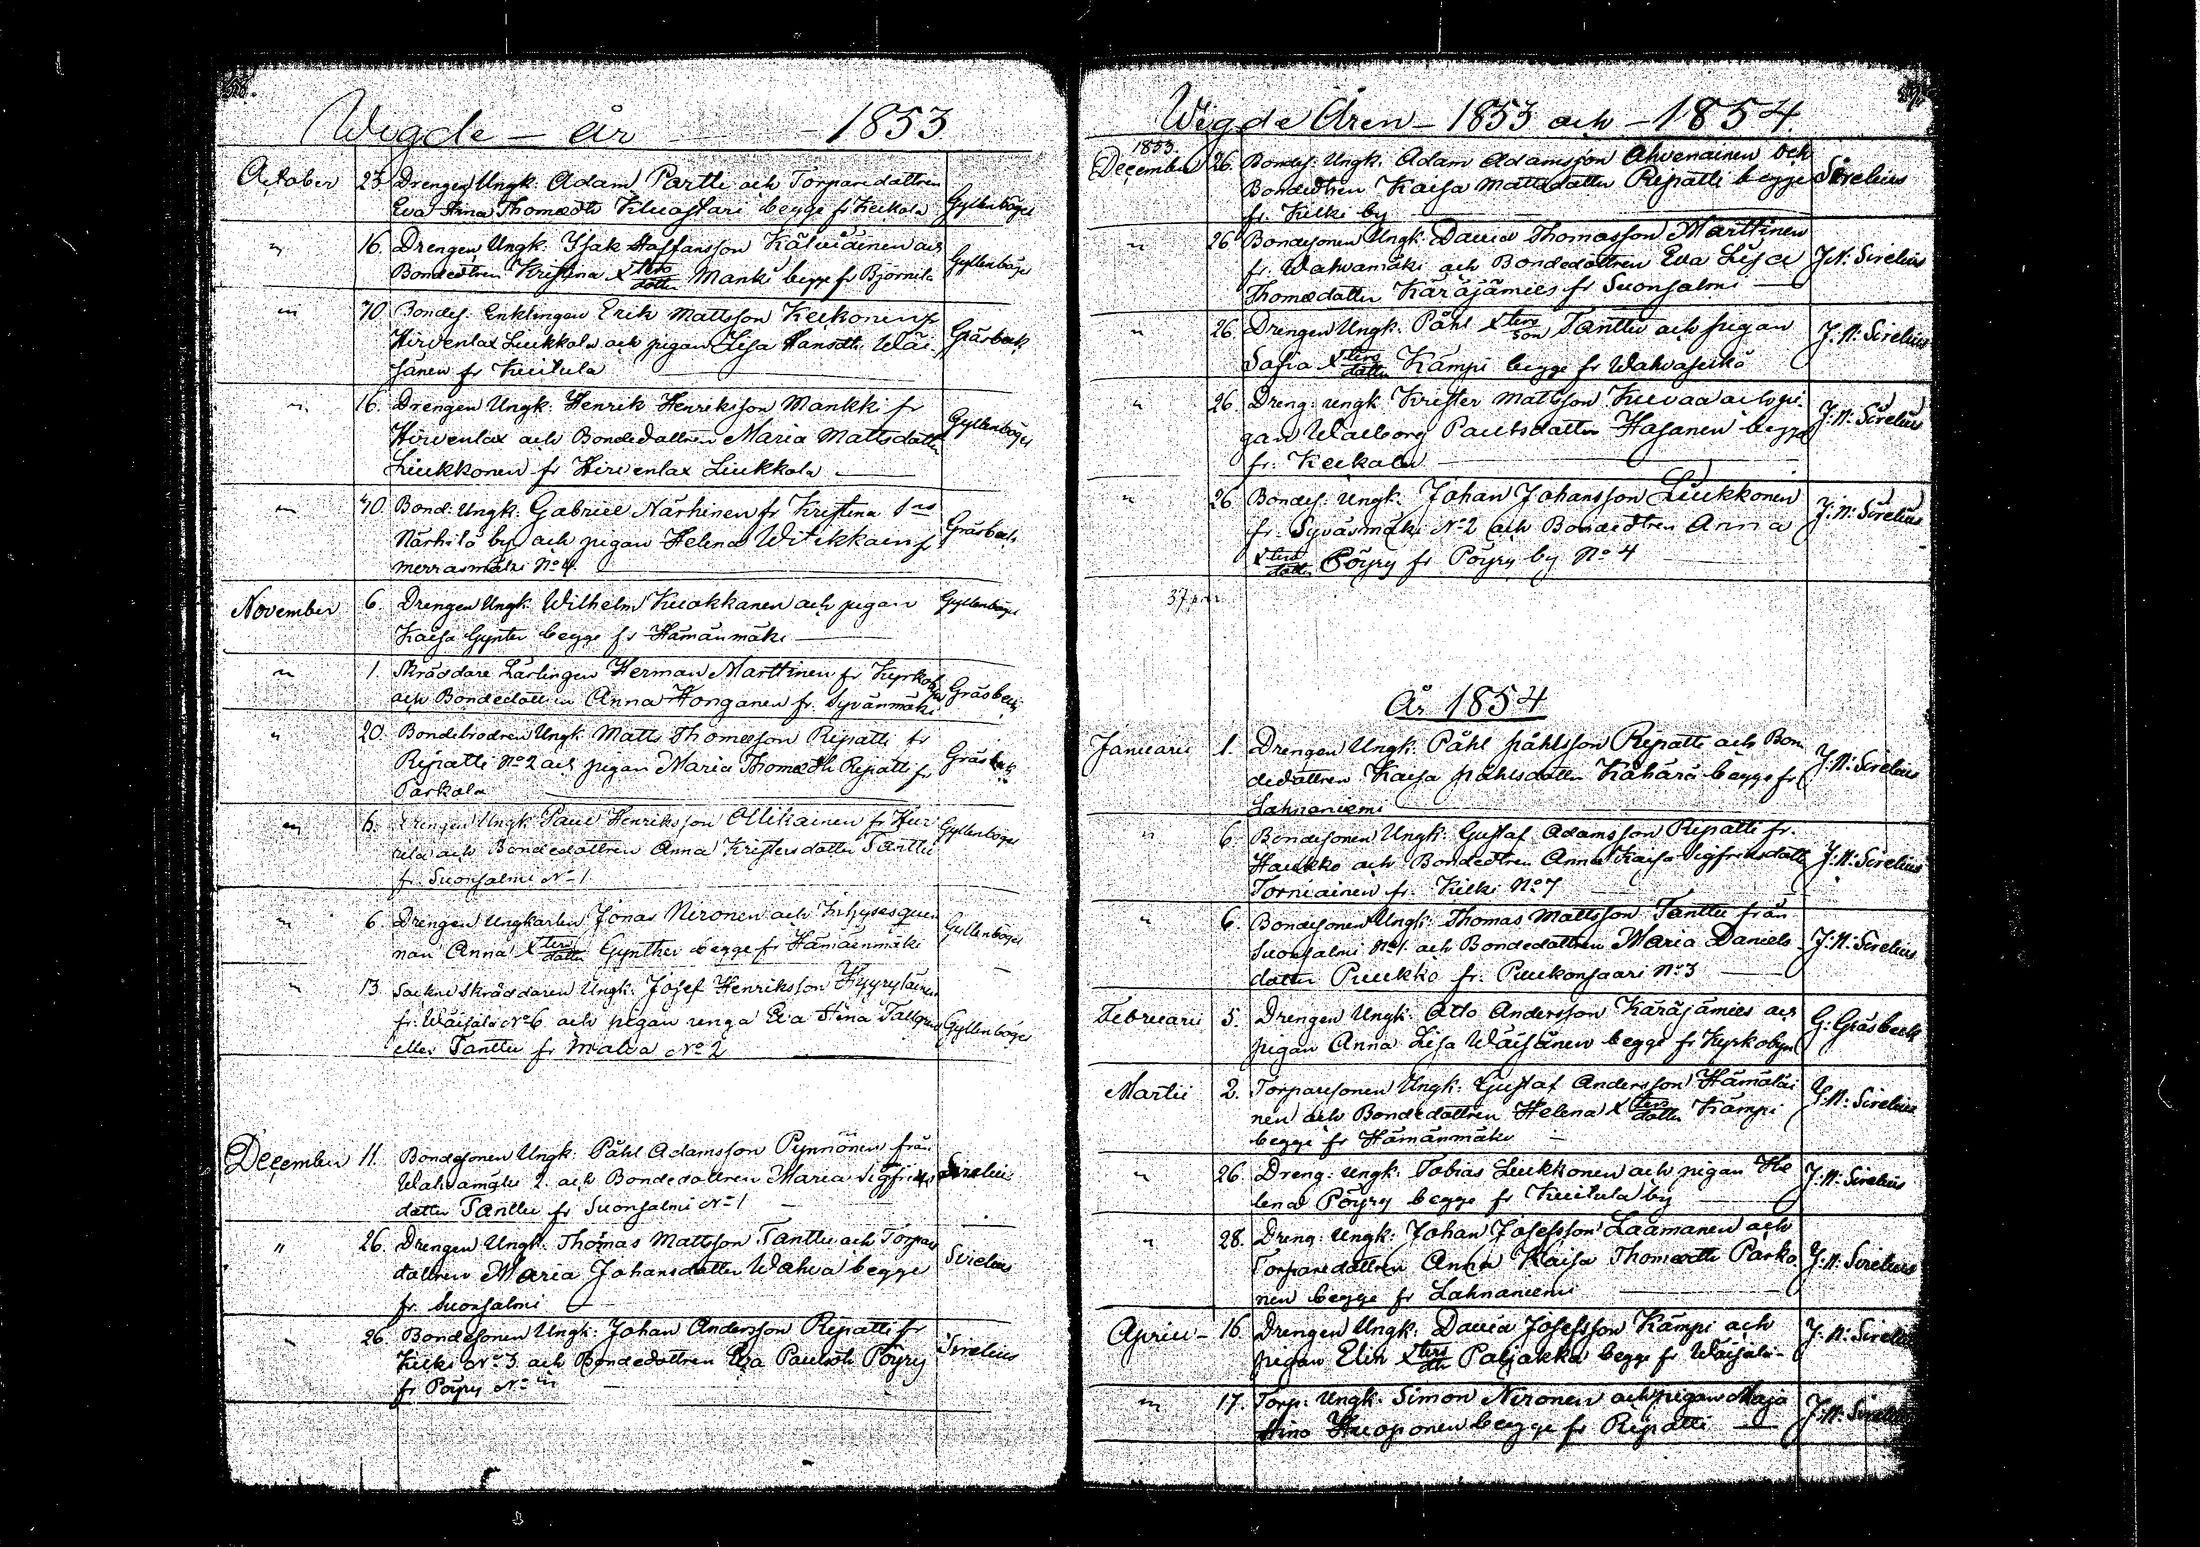 Wigde – år – 1853
October 23. Drengen Ungk: Adam Partti och Torparedottren
Eva Stina Thomædtr Kluastari begge fr Keikala Gyllenbögel
" 16. Drengen Ungk. Isak Staffansson Kälviäinen och
Bondedtren Kristina Xters dotter Manki begge fr Björnilä Gyllenbögel
" 30 Bondes. Enklingen Erik Mattsson Keikonen fr
Hirvenlax Liukkola och pigan Lisa Hansdtr Wäi- Gräsbeck
sänen fr Kuitula
" 16. Drengen Ungk: Henrik Henriksson Mankki fr
Hirvenlax och Bondedottren Maria Mattsdotter Gyllenbögel
Liukkonen fr Hirvenlax Liukkola
" 30 Bond: Ungk: Gabriel Närhinen fr Kristina
Närhilä by och pigan Helena Witikkain fr Gräsbeck
Merrasmäki No 4.
November 6. Drengen Ungk Wilhelm Kuokkanen och pigan Gyllenbögel
Kaisa Gynter begge fr Hämänmäki
" 1. Skräddare Lärlingen Herman Marttinen fr Kyrkob
och Bondedottren Anna Honganen fr. Syvänmäki Gräsbeck
" 20. Bondebrodren Ungk Matts Thomasson Ripatti fr
Ripatti No 2 och pigan Maria Thomædtr Ripatti fr Gräsbeck
Parkala
" 6. Drengen Ungk Paul Henriksson Ollikainen fr
och Bondedottren Anna Kristersdotter Tanttu Gyllenbögel
fr. Suonsalmi No 1
" 6. Drengen Ungkarlen Jonas Nironen och Inhysesquin
nan Anna Xters dotter Gynther begge fr Hämäenmäki Gyllenbögel
" 13 Sockne skräddaren Ungk: Josef Henriksson Hyyryläinen
fr. Wäisälä No 6. och pigan unga Eva Stina Tallgren Gyllenbögel
eller Tanttu fr Malva No 2
December 11. Bondesonen Ungk: Påhl Adamsson Pynnönen från
Wahvamäki 2. och Bondedottren Maria Sigfrids Sirelius
dotter Tanttu fr Suonsalmi No 1
" 26. Drengen Ungk: Thomas Mattsson Tanttu och Torpare
dottren Maria Johansdotter Wahva begge Sirelius
fr. Suonsalmi
" 26. Bondesonen Ungk: Johan Andersson Ripatti fr
Kilki No 3 och Bondedottren Eva Paulsdtr Pöyry Sirelius
fr Pöyry No
Wigde Åren – 1853 och – 1854.
1853.
December 26. Bondes. Ungk. Adam Adamsson Ahvenainen och
Bondedtren Kaisa Mattsdotter Ripatti begge Sirelius
fr. Kilki by
" 26 Bondesonen Ungk: David Thomasson Marttinen
fr. Wahvamäki och Bondedottren Eva Lisa J:N: Sirelius
Thomædotter Käräjämies fr Suonsalmi
" 26. Drengen Ungk. Påhl Xters son Tanttu och pigan J:N: Sirelius
Sofia Xters dotter Kämpi begge fr Wahvaselkä
" 26. Dreng: ungk Krister Mattsson Kuvaa och pi-
gan Walborg Paulsdotter Hasanen begge J:N: Sirelius
fr. Keikala
" 26 Bondes. Ungk. Johan Johansson Liukkonen
fr. Syväsmäki No 2 och Bondedtren Anna J:N: Sirelius
Xters dotter Pöyry fr Pöyry by No 4
37 par
År 1854
Januarii 1. Drengen Ungk: Påhl Påhlsson Ripatti och Bon
dedottren Kaisa Påhlsdotter Kähärä begge fr J:N: Sirelius
Lahnaniemi
" 6. Bondesonen Ungk: Gustaf Adamsson Ripatti fr.
Haukko och Bondedtren Anna Kaisa Sigfridsdotter J:N: Sirelius
Torniainen fr. Kilki No 7
" 6. Bondesonen Ungk: Thomas Mattsson Tanttu från
Suonsalmi No 1. och Bondedottren Maria Daniels J:N: Sirelius
dotter Puukko fr. Puukonsaari No 3
Februarii 5. Drengen Ungk: Otto Andersson Käräjämies och
pigan Anna Lisa Wäisänen begge fr Kyrkobyn G: Gräsbeck
Martii 2. Torparesonen Ungk: Gustaf Andersson Hämäläi
nen och Bondedottren Helena Xters dotter Kämpi J:N: Sirelius
begge fr Hämänmäki
" 26. Dreng: ungk: Tobias Liukkonen och pigan He
lena Pöyry begge fr Kuitula by J:N: Sirelius
" 28. Dreng: Ungk: Johan Josefsson Laamanen och
Torparedottren Anna Kaisa Thomædtr Parko J:N: Sirelius
nen begge fr Lahnaniemi
April 16 Drengen Ungk: David Josefsson Kämpi och
pigan Elin Xters dtr Paljakka begge fr Wäisälä J:N: Sirelius
" 17. Torp: Ungk: Simon Nironen och pigan Maja
Stina Kuoponen begge fr Ripatti J:N: Sirelius